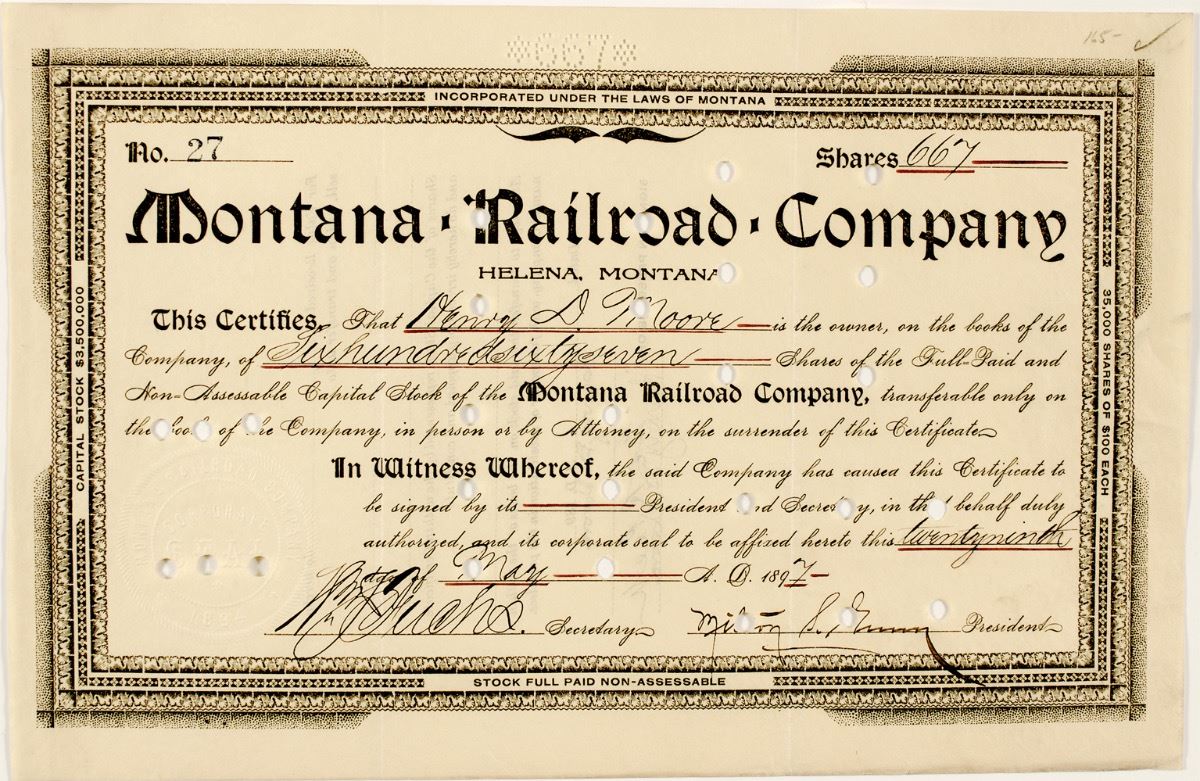 165- ✓
*667*
INCORPORATED UNDER THE LAWS OF MONTANA
No. 27
Shares 667
Montana · Railroad · Company
HELENA, MONTANA
This Certifies, That Henry D. Moore is the owner, on the books of the
Company, of Six hundred sixty seven Shares of the Full-Paid and
Non-Assessable Capital Stock of the Montana Railroad Company, transferable only on
the books of the Company, in person or by Attorney, on the surrender of this Certificate
In Witness Whereof, the said Company has caused this Certificate to
be signed by its President and Secretary, in that behalf duly
authorized, and its corporate seal to be affixed hereto this twentyninth
day of May A. D. 1897
Secretary
President
CAPITAL STOCK $3,500,000
35,000 SHARES OF $100 EACH
STOCK FULL PAID NON-ASSESSABLE